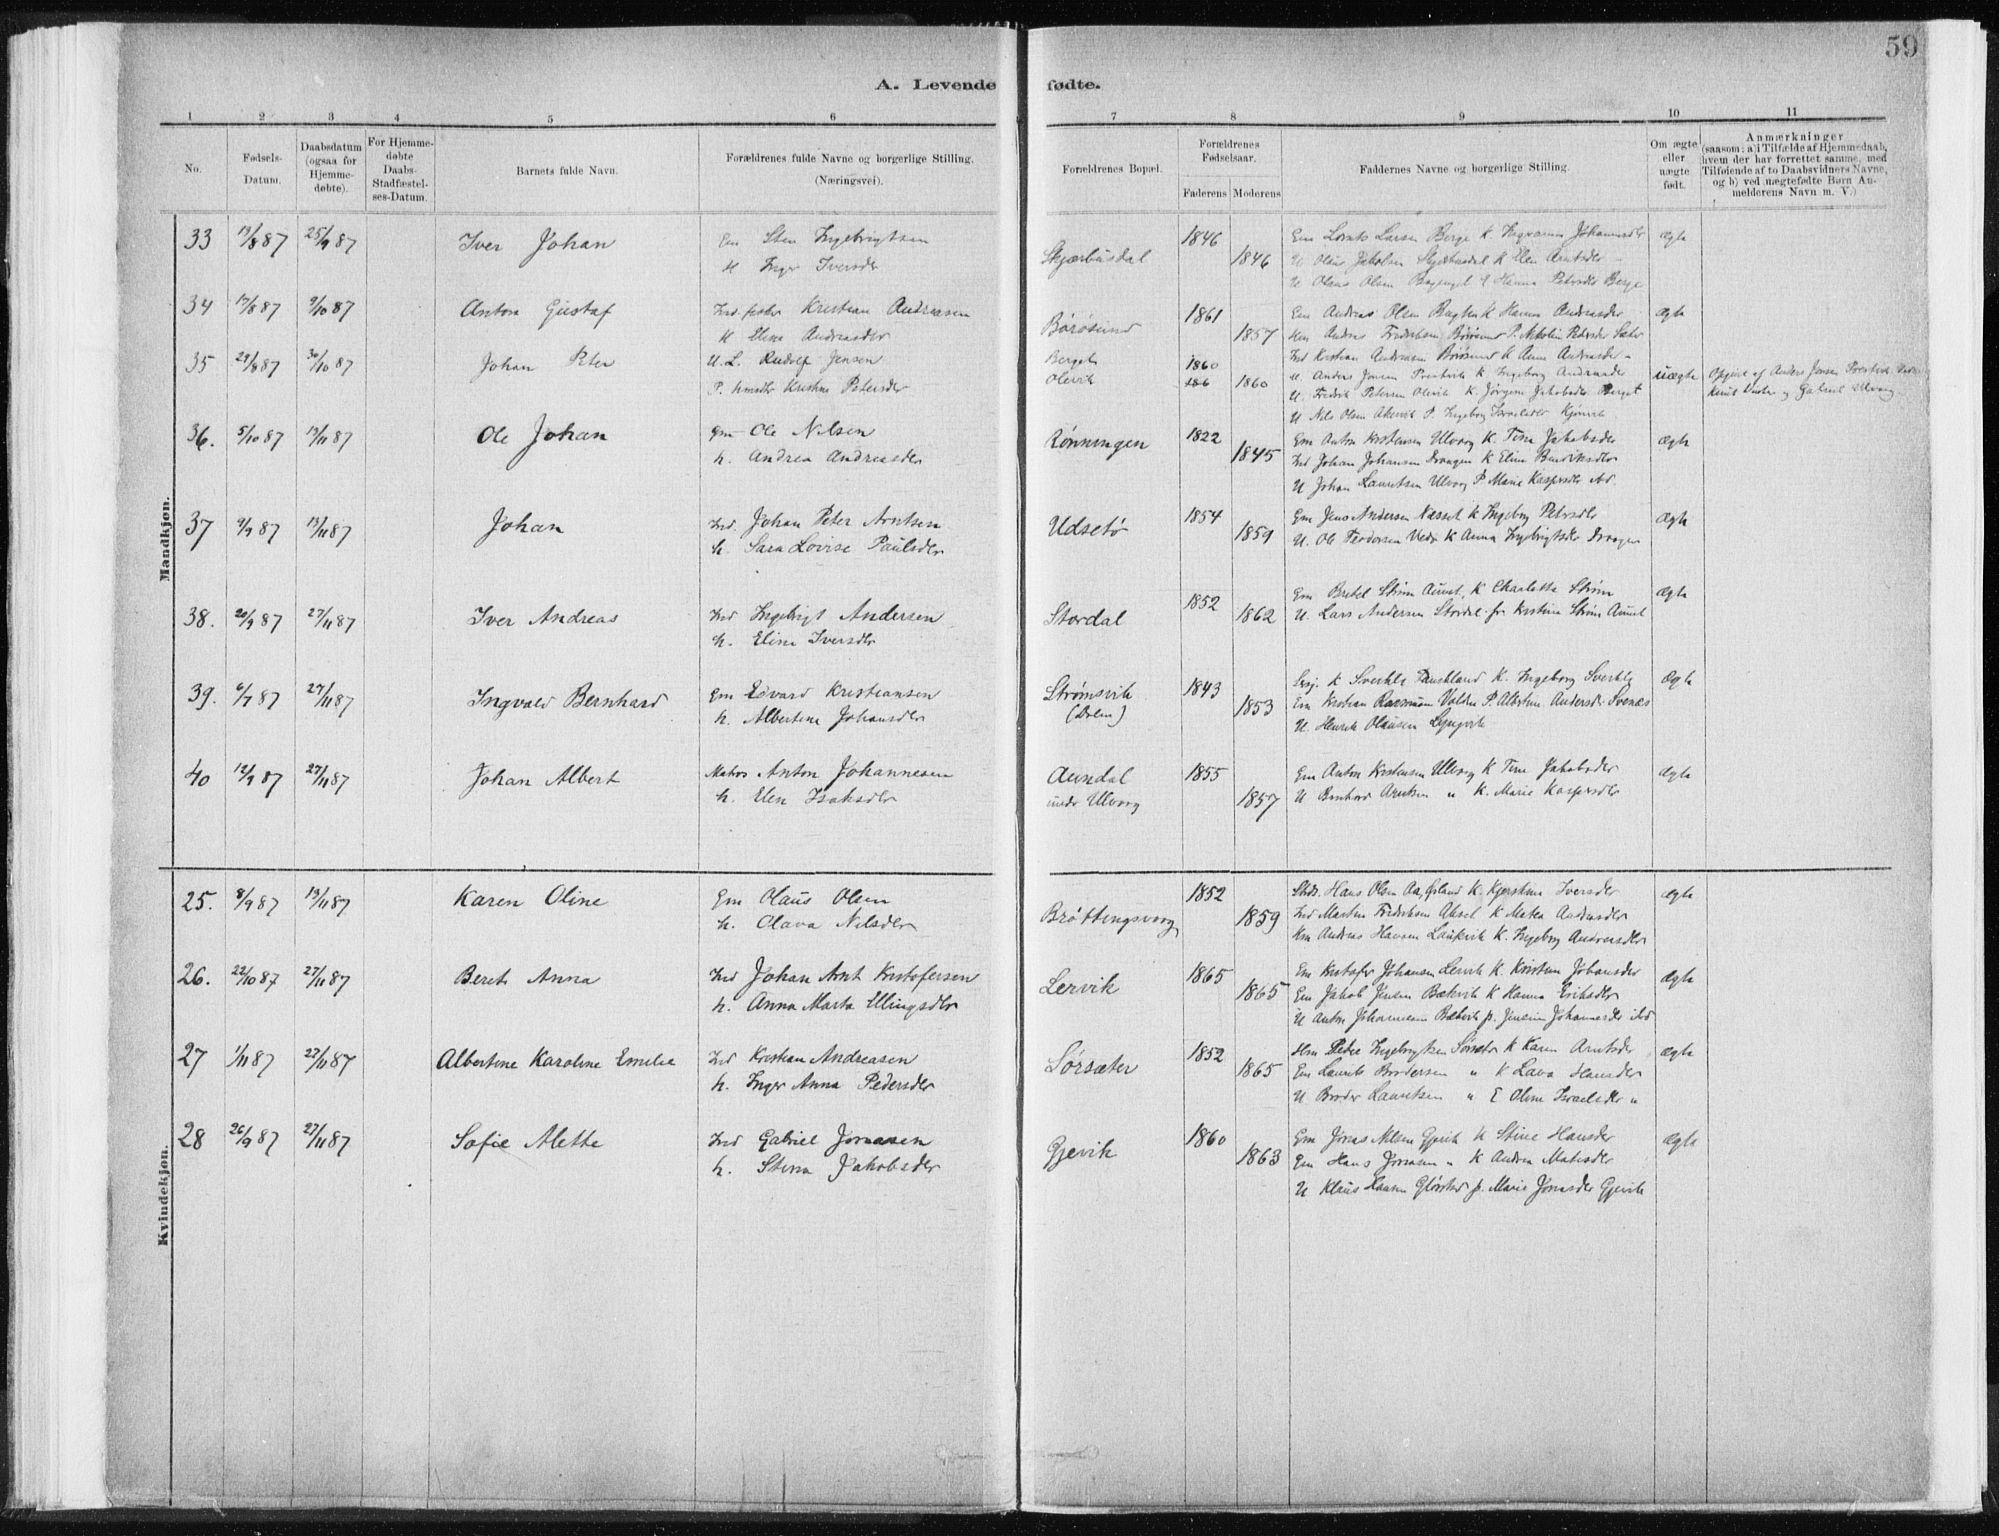 59
A. Levende fødte.
1 2 3 4 5 6 7 8 9 10 11
No.
Fødsels-Datum.
Daabsdatum (ogsaa for Hjemme-døbte).
For Hjemme-døbte Daabs-Stadfæstel-ses-Datum.
Barnets fulde Navn.
Forældrenes fulde Navne og borgerlige Stilling.
(Næringsvei).
Forældrenes Bopæl.
Forældrenes Fødselsaar.
Faderens Moderens
Faddernes Navne og borgerlige Stilling.
Om ægte eller uægte født.
Anmærkninger
(saasom: a) i Tilfælde af Hjemmedaab,
hvem der har forrettet samme, med
Tilføiende af to Daabsvidners Navne,
og b) ved uægtefødte Børn An-
melderens Navn m. V.)
Mandkjøn.
33 19/8 87 25/9 87 Iver Johan Em Sten Ingebrigtsen Skjærbusdal 1846 Em Lornts Larsen Berge K. Johannesdr ægte
K Inger Iversdr 1846 U Olaus Jakobsen K Elen Arntsdr
U Olaus Olsen Hanna Petersdr Berge
34 17/8 87 9/10 87 Anton Gustaf Kristian Andreasen Børøsund 1861 Em Andreas Olsen K Hanna Andreasdr ægte
K Elena Andreasdr 1857 Andreas Fredriksen Børøsund P. Nikolin Petersdr Sæter
35 29/8 87 30/10 87 Johan Peter U.L. Rudolf Jensen Berget 1860 Kristian Andreasen Børøsund K Anna Andreasdr
P. Kristine Petersdr Olsvik 186 1860 Anders Jensen K Ingeborg Andreasdr uægte Opgivet af Anders Jensen
U. Fredrik Petersen Olsvik K. Jørgine Jakobsdr Berget og Gabriel Ulvaag
U Nils Olsen P. Ingeborg Israelsdr
36. 5/10 87 13/11 87 Ole Johan Gm Ole Nilsen Rønningen 1822 Em Anton Kristensen Ulvaag K. Tine Jakobsdr ægte
k. Andrea Andreasdr 1845 Ind Johan Johansen K Elina Bendiksdr
U Johan Lauritsen Ulvaag P. Marie Kaspersdr
37 9/9 87 13/11 87 Johan Ind. Johan Peter Arntsen Udsetø 1854 Em Jens Andersen Næsset K Ingeborg Petersdr ægte
k. Sara Lovise Paulsdr 1859 U. Ole K Anna Ingebrigtsdr
38. 20/9 87 27/11 87 Iver Andreas Ind Ingebrigt Andersen Stordal 1852 Em Strøm Aunet K Charlotte Strøm ægte
k. Elina Iversdr 1862 U. Lars Andersen Stordal Kristine Strøm Aunet
39. 6/7 87 27/11 87 Ingvald Bernhard Em Edvard Kristiansen Strømsvik 1843 K. Ingeborg ægte
k. Albertine Johansdr (Dolm) 1853 Em Kristian Rasmusen P. Albertine Andersdr
U. Henrik Olausen
40 12/9 87 27/11 87 Johan Albert Matros Anton Johannesen Aundal 1855 Em Anton Kristensen Ulvaag K Tine Jakobsdr ægte
k. Elen Isaksdr under Ulvaag 1857 U Bernhard Arntsen " K. Marie Kaspersdr
Kvindekjøn.
25. 8/9 87 13/11 87 Karen Oline Em Olaus Olsen Brøttingsvaag 1852 Hans Olsen K. Kjerstine Iversdr ægte
k. Olava Nilsdr 1859 Ind Martin Fredriksen K Matea Andersdr
Andreas Hansen Laukvik K. Ingeborg Andreasdr
26. 22/10 87 27/11 87 Beret Anna Ind Johan Arnt Kristofersen Lervik 1865 Em Kristofer Johansen Lervik K. Kristine Johansdr ægte
k. Anna Marta Ellingsdr 1865 Em Jakob Jensen Bækvik K Hanna Eriksdr
U Anton Johannesen Bækvik p. Johannesdr
27 1/11 87 27/11 87 Albertine Karoline Emilie Ind Kristian Andreasen Sørsæter 1852 Peder Ingebrigtsen K Karen Arntsdr ægte
k. Inger Anna Pedersdr 1865 Em Laurits Brodersen " K Lava Hansdr
U Broder Lauritsen " E Oline Israelsdr "
28 26/9 87 27/11 87 Sofie Alette Ind Gabriel Jonasen Gjevik 1860 Em Jonas Nilsen Gjevik K Stine Hansdr ægte
k. Stina Jakobsdr 1863 Em Hans Jonasen " K Andrea Matisdr
U Klaus Hansen p. Marie Jonasdr Gjevik